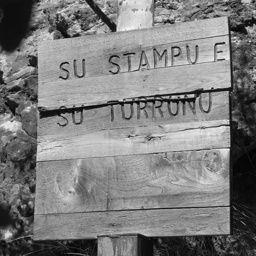 SU STAMPU E
SU TURRUNU